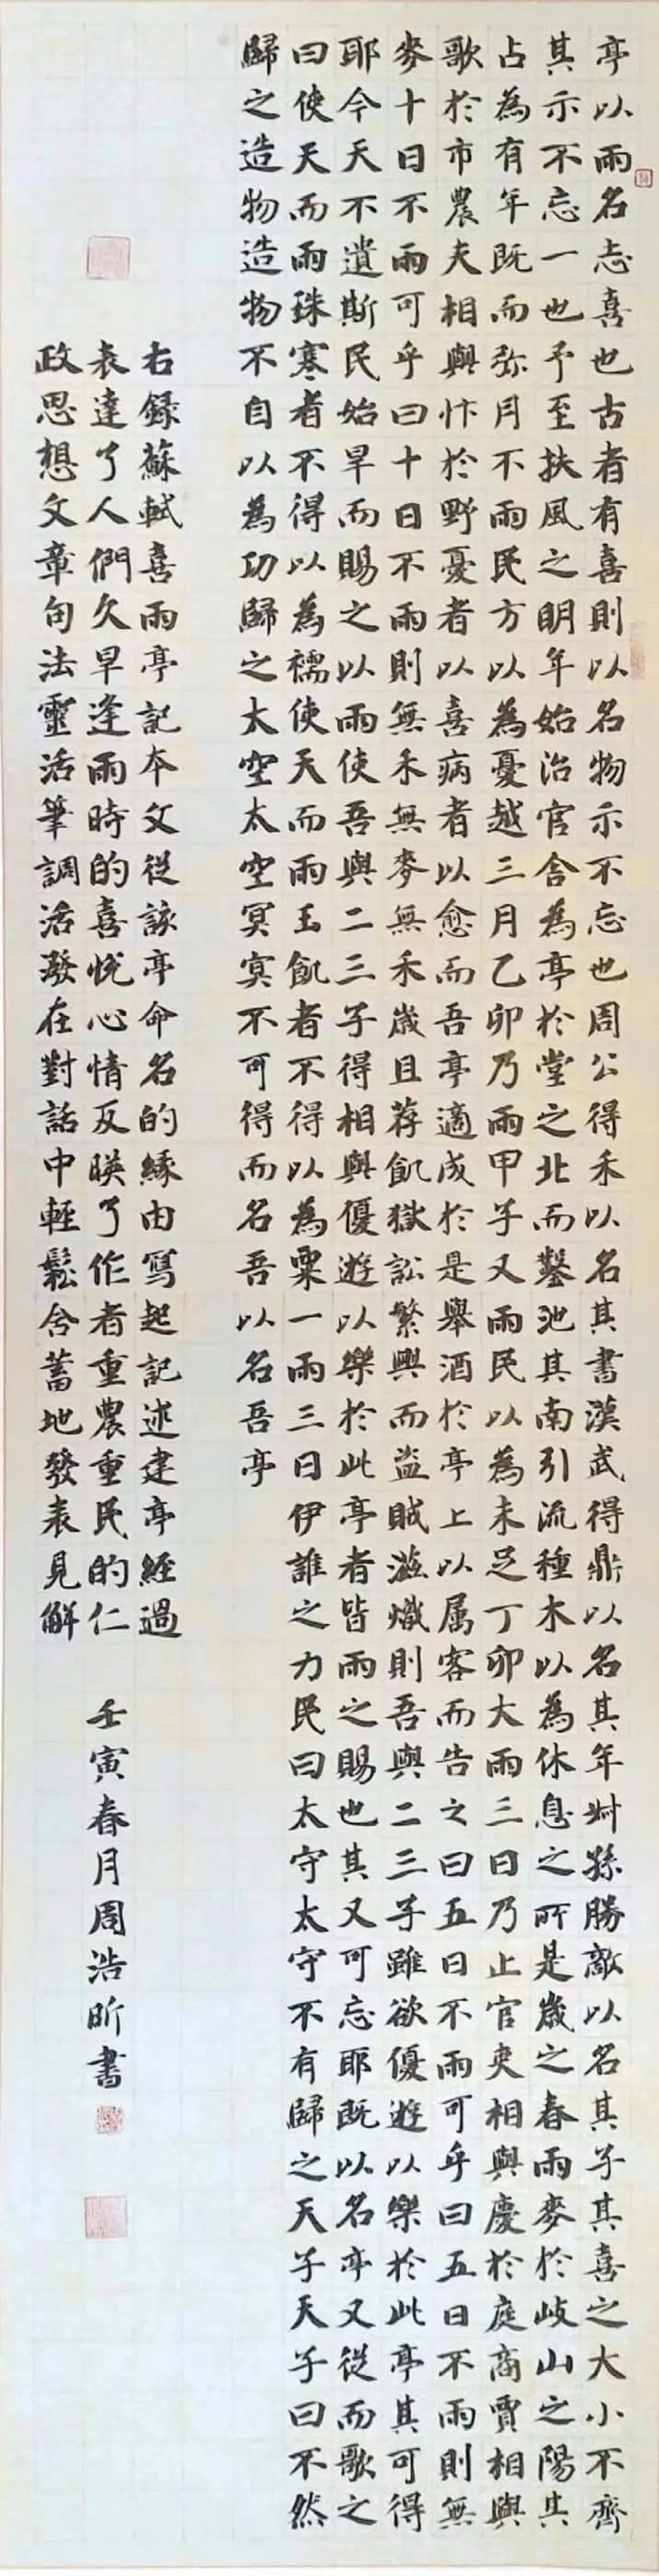 亭以雨名志喜也古者有喜則以名物示不忘也周公得禾以名其書漢武得鼎以名其年叔孫勝敵以名其子其喜之大小不齊
其示不忘一也予至扶風之明年始治官舍為亭於堂之北而鑿池其南引流種木以為休息之所是歲之春雨麥於岐山之陽其
占為有年既而弥月不雨民方以為憂越三月乙卯乃雨甲子又雨民以為未足丁卯大雨三日乃止官吏相與慶於庭商賈相與
歌於市農夫相與忭於野憂者以喜病者以愈而吾亭適成於是舉酒於亭上以属客而告之曰五日不雨可乎曰五日不雨則無
麥十日不雨可乎曰十日不雨則無禾無麥無禾歲且荐飢獄訟繁興而盗賊滋熾則吾與二三子雖欲優遊以樂於此亭其可得
耶今天不遺斯民始旱而賜之以雨使吾與二三子得相與優遊以樂於此亭者皆雨之賜也其又可忘耶既以名亭又從而歌之
曰使天而雨珠寒者不得以為襦使天而雨玉飢者不得以為粟一雨三日伊誰之力民曰太守太守不有歸之天子天子曰不然
歸之造物造物不自以為功歸之太空太空冥冥不可得而名吾以名吾亭
右録蘇軾喜雨亭記本文從該亭命名的緣由寫起記述建亭經過
表達了人們久旱逢雨時的喜悦心情反映了作者重農重民的仁
政思想文章句法靈活筆調活潑在對話中輕鬆含蓄地發表見解
壬寅春月周浩昕書